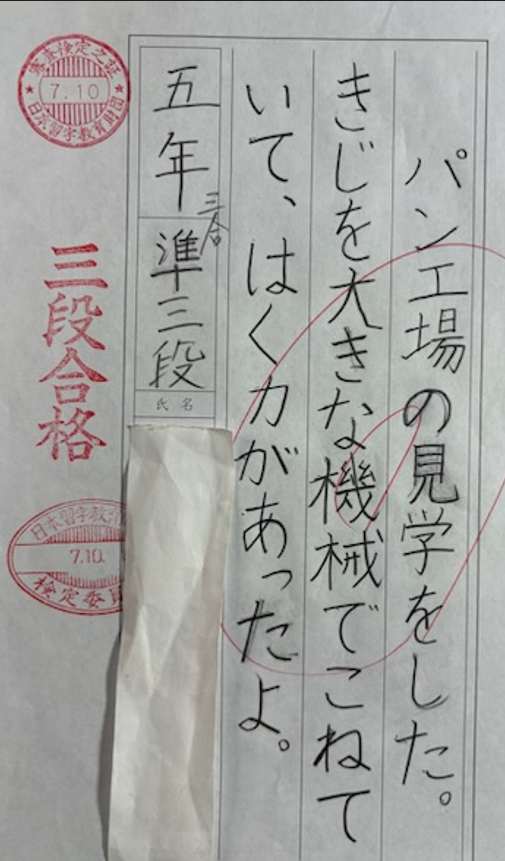 パン工場の見学をした。
きじを大きな機械でこねて
いて、はく力があったよ。
五年 準三段
三合
氏名
審査検定之証
7.10
日本習字教育財団
三段合格
日本習字教育
7.10.
検定委員